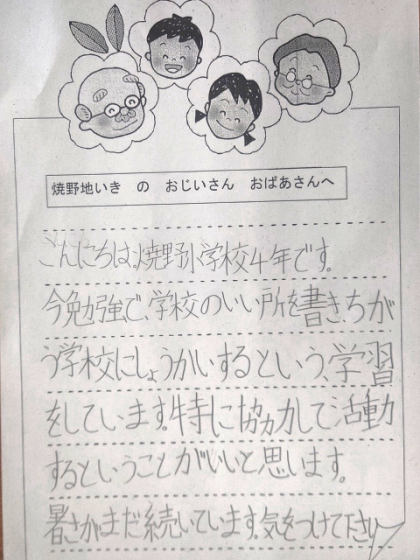 焼野地いき の おじいさん おばあさんへ
こんにちは。焼野小学校4年です。
今勉強で、学校のいい所を書き、ちが
う学校にしょうかいするという、学習
をしています。特に協力して活動
するということがいいと思います。
暑さがまだ続いています。気をつけて下さい